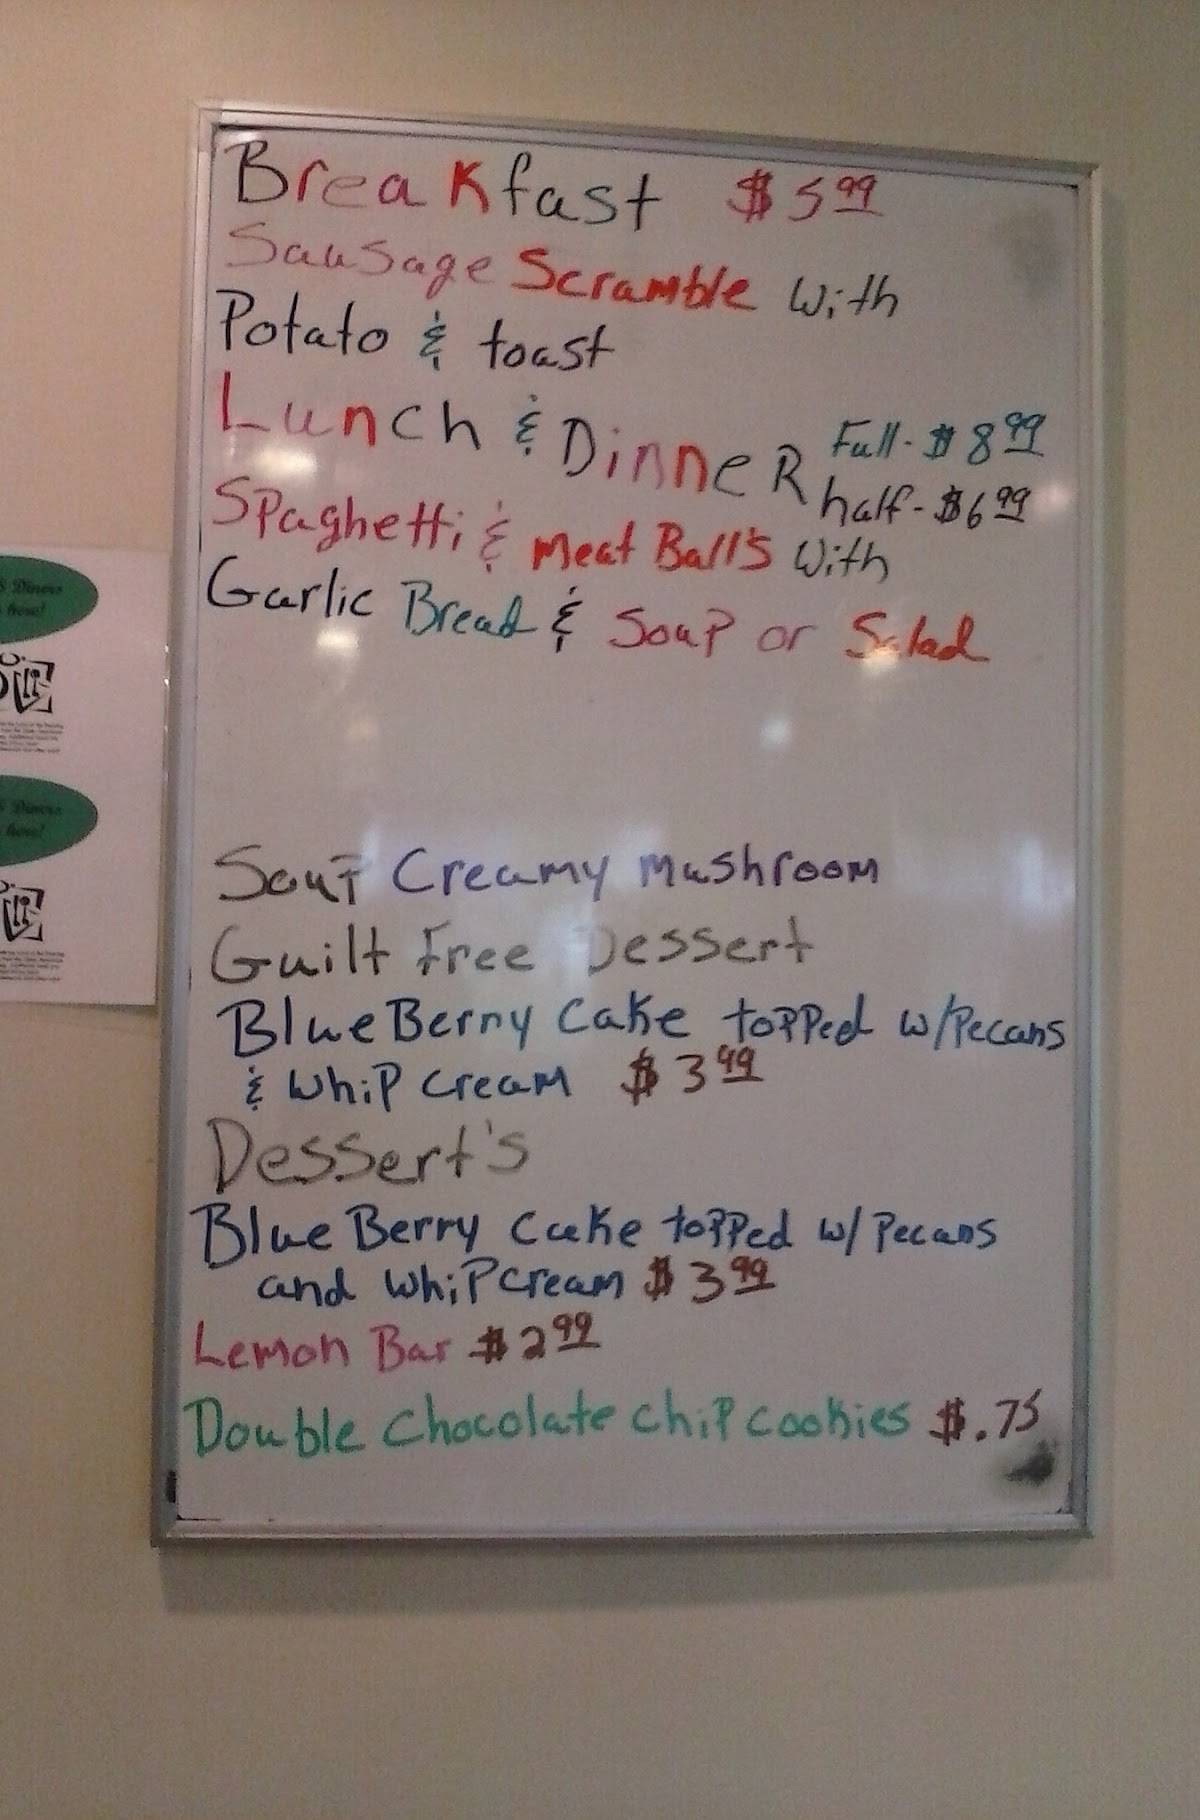 Breakfast $5.99
Sausage Scramble with
Potato & toast
Lunch & Dinner Full - $8.99
half - $6.99
Spaghetti & Meat Ball's with
Garlic Bread & Soup or Salad
Soup Creamy Mushroom
Guilt Free Dessert
Blue Berry Cake topped w/Pecans
& Whip cream $3.99
Dessert's
Blue Berry Cake topped w/ Pecans
and whip cream $3.99
Lemon Bar $2.99
Double Chocolate Chip Cookies $.75
Diners
here!
Diners
here!